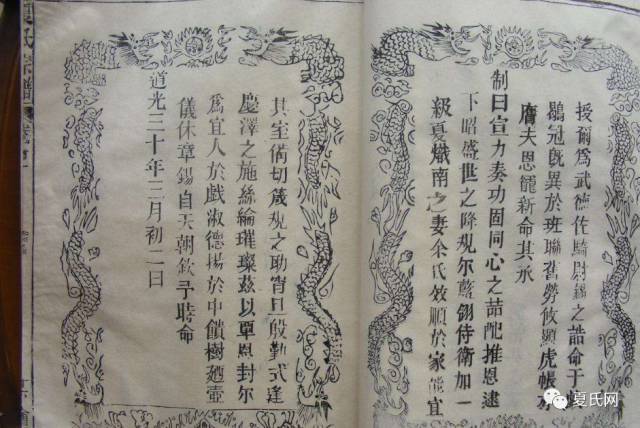 授爾爲武德佐騎尉錫之誥命于
鶡冠旣異於班聯舊勞攸顯虎帳
膺夫恩寵新命其承
制曰宣力奏功固同心之喆配推恩逮
下昭盛世之隆規尔藍翎侍衛加一
級夏熾南之妻余氏效順於家能宜
其室儆切箴規之助宵旦殷勤式逢
慶澤之施絲綸璀璨茲以覃恩封尔
爲宜人於戲淑德揚於中饋樹廼壼
儀休章錫自天朝欽予時命
道光三十年三月初二日
氏宗譜
夏氏网